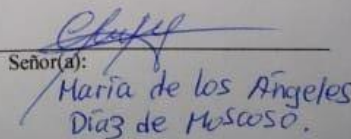 Señor(a):
María de los Ángeles
Díaz de Moscoso.